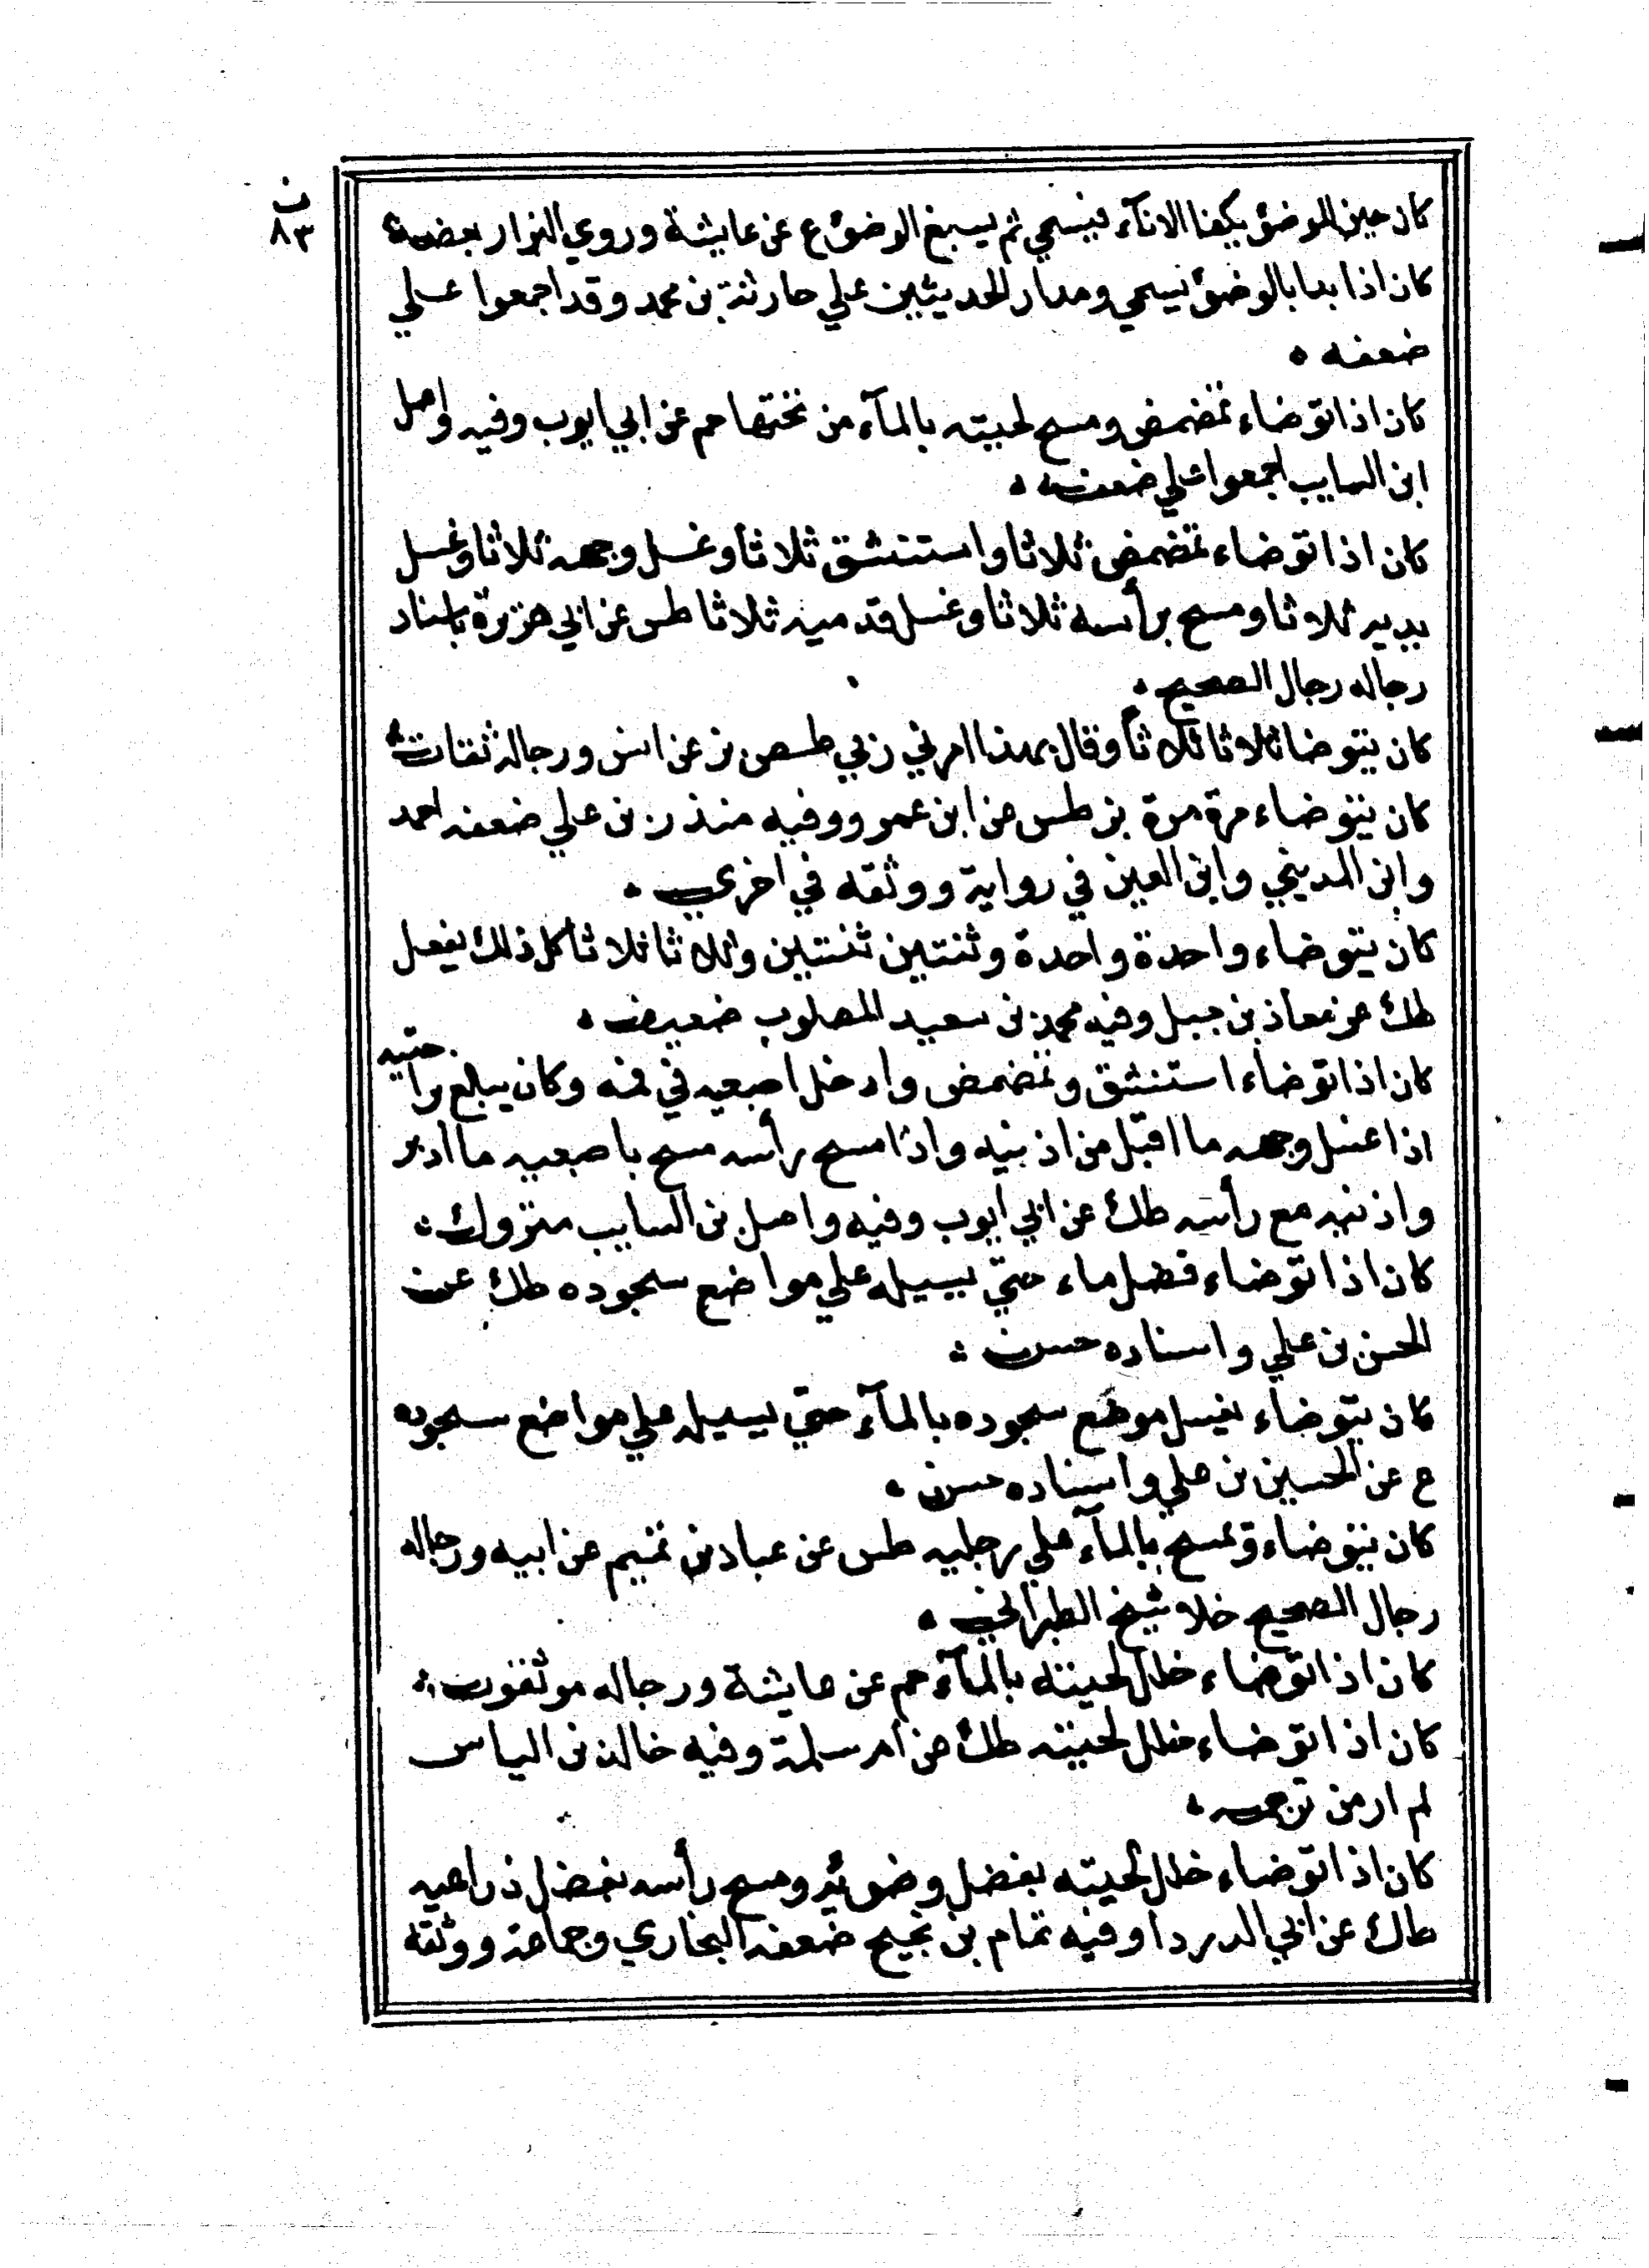 ن
٨٣
كان حين للوضؤ يكفا الانآء فيسمي ثم يسبغ الوضؤ ع عن عايشة وروي البزار بعضه
كان اذا بدا بالوضؤ يسمي ومدار الحديثين علي حارثة بن محمد وقد اجمعوا علي
ضعفه
كان اذا توضاء تمضمض ومسح لحيته بالمآء من تحتها حم عن ابي ايوب وفيه واصل
ابن السايب اجمعوا علي ضعفه
كان اذا توضاء تمضمض ثلاثا واستنشق ثلاثا وغسل وجهه ثلاثا وغسل
يديه ثلاثا ومسح برأسه ثلاثا وغسل قدميه ثلاثا طس عن ابي هريرة باسناد
رجاله رجال الصحيح
كان يتوضا ثلاثا ثلاثا وقال بهذا امرني ربي طسص بز عن انس ورجاله ثقات
كان يتوضاء مرة مرة بز طس عن ابن عمرو وفيه منذر بن علي ضعفه احمد
وابن المديني وابن المعين في رواية ووثقه في اخري
كان يتوضاء واحدة واحدة وثنتين ثنتين وثلاثا ثلاثا كل ذلك يفعل
طك عن معاذ بن جبل وفيه محمد بن سعيد المصلوب ضعيف
كان اذا توضاء استنشق وتمضمض وادخل اصبعيه في فمه وكان يبلع براحتيه
اذا غسل وجهه ما اقبل من اذنيه واذا مسح رأسه مسح باصبعيه ما ادبر
واذنيه مع رأسه طك عن ابي ايوب وفيه واصل بن السايب متروك
كان اذا توضاء فضل ماء حتي يسيله علي مواضع سجوده طك عن
الحسن بن علي واسناده حسن
كان يتوضاء يغسل موضع سجوده بالمآء حتي يسيله علي مواضع سجوده
ع عن الحسين بن علي واسناده حسن
كان يتوضاء وتمسح بالمآء علي رجليه طس عن عباد بن تميم عن ابيه ورجاله
رجال الصحيح خلا شيخ الطبراني
كان اذا توضاء خلل لحيته بالمآء حم عن عايشة ورجاله موثقون
كان اذا توضاء خلل لحيته طك عن ام سلمة وفيه خالد بن الياس
لم ار من ترجمه
كان اذا توضاء خلل لحيته بفضل وضوئه ومسح رأسه بفضل ذراعيه
طك عن ابي الدردا وفيه تمام بن نجيح ضعفه البخاري وجماعة ووثقه